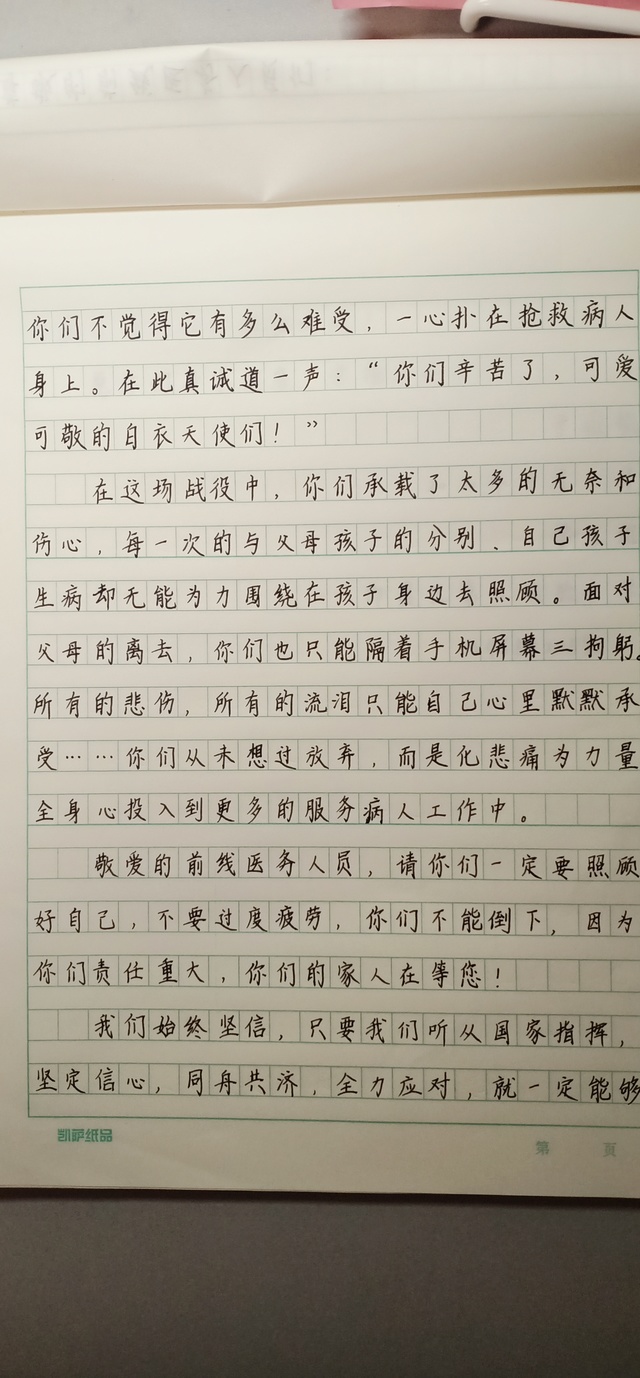 你们不觉得它有多么难受，一心扑在抢救病人
身上。在此真诚道一声：“你们辛苦了，可爱
可敬的白衣天使们！”
在这场战役中，你们承载了太多的无奈和
伤心，每一次的与父母孩子的分别、自己孩子
生病却无能为力围绕在孩子身边去照顾。面对
父母的离去，你们也只能隔着手机屏幕三拘躬。
所有的悲伤，所有的流泪只能自己心里默默承
受……你们从未想过放弃，而是化悲痛为力量
全身心投入到更多的服务病人工作中。
敬爱的前线医务人员，请你们一定要照顾
好自己，不要过度疲劳，你们不能倒下，因为
你们责任重大，你们的家人在等您！
我们始终坚信，只要我们听从国家指挥，
坚定信心，同舟共济，全力应对，就一定能够
凯萨纸品
第 页